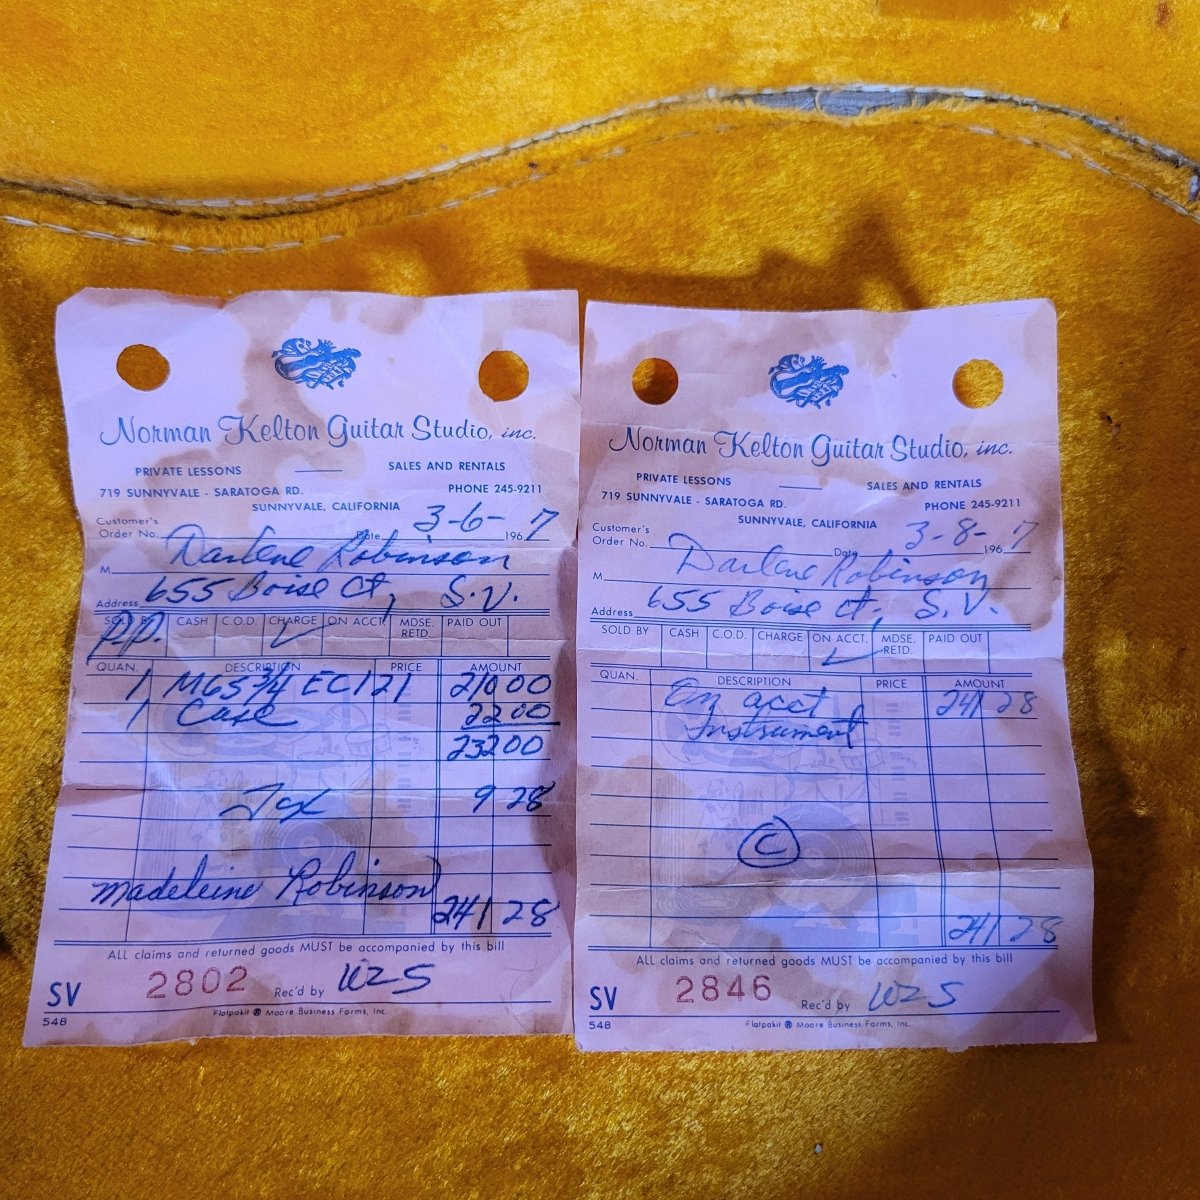 Norman Kelton Guitar Studio, inc.
PRIVATE LESSONS SALES AND RENTALS
719 SUNNYVALE - SARATOGA RD. PHONE 245-9211
SUNNYVALE, CALIFORNIA
Customer's
Order No. Date 3-6- 1967
M Darlene Robinson
Address 655 Boise Ct, S.V.
SOLD BY CASH C.O.D. CHARGE ON ACCT. MDSE. RETD. PAID OUT
P.P. ✓
QUAN. DESCRIPTION PRICE AMOUNT
1 M65 3/4 EC121 210 00
1 Case 22 00
232 00
Tax 9 28
Madeleine Robinson
241 28
ALL claims and returned goods MUST be accompanied by this bill
SV 2802 Rec'd by WZS
548 Flatpakit ® Moore Business Forms, Inc.
Norman Kelton Guitar Studio, inc.
PRIVATE LESSONS SALES AND RENTALS
719 SUNNYVALE - SARATOGA RD. PHONE 245-9211
SUNNYVALE, CALIFORNIA
Customer's
Order No. Date 3-8- 1967
M Darlene Robinson
Address 655 Boise Ct, S.V.
SOLD BY CASH C.O.D. CHARGE ON ACCT. MDSE. RETD. PAID OUT
✓
QUAN. DESCRIPTION PRICE AMOUNT
On acct 241 28
Instrument
C
241 28
ALL claims and returned goods MUST be accompanied by this bill
SV 2846 Rec'd by WZS
548 Flatpakit ® Moore Business Forms, Inc.